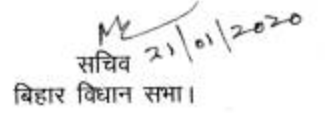 21/01/2020
सचिव
बिहार विधान सभा।